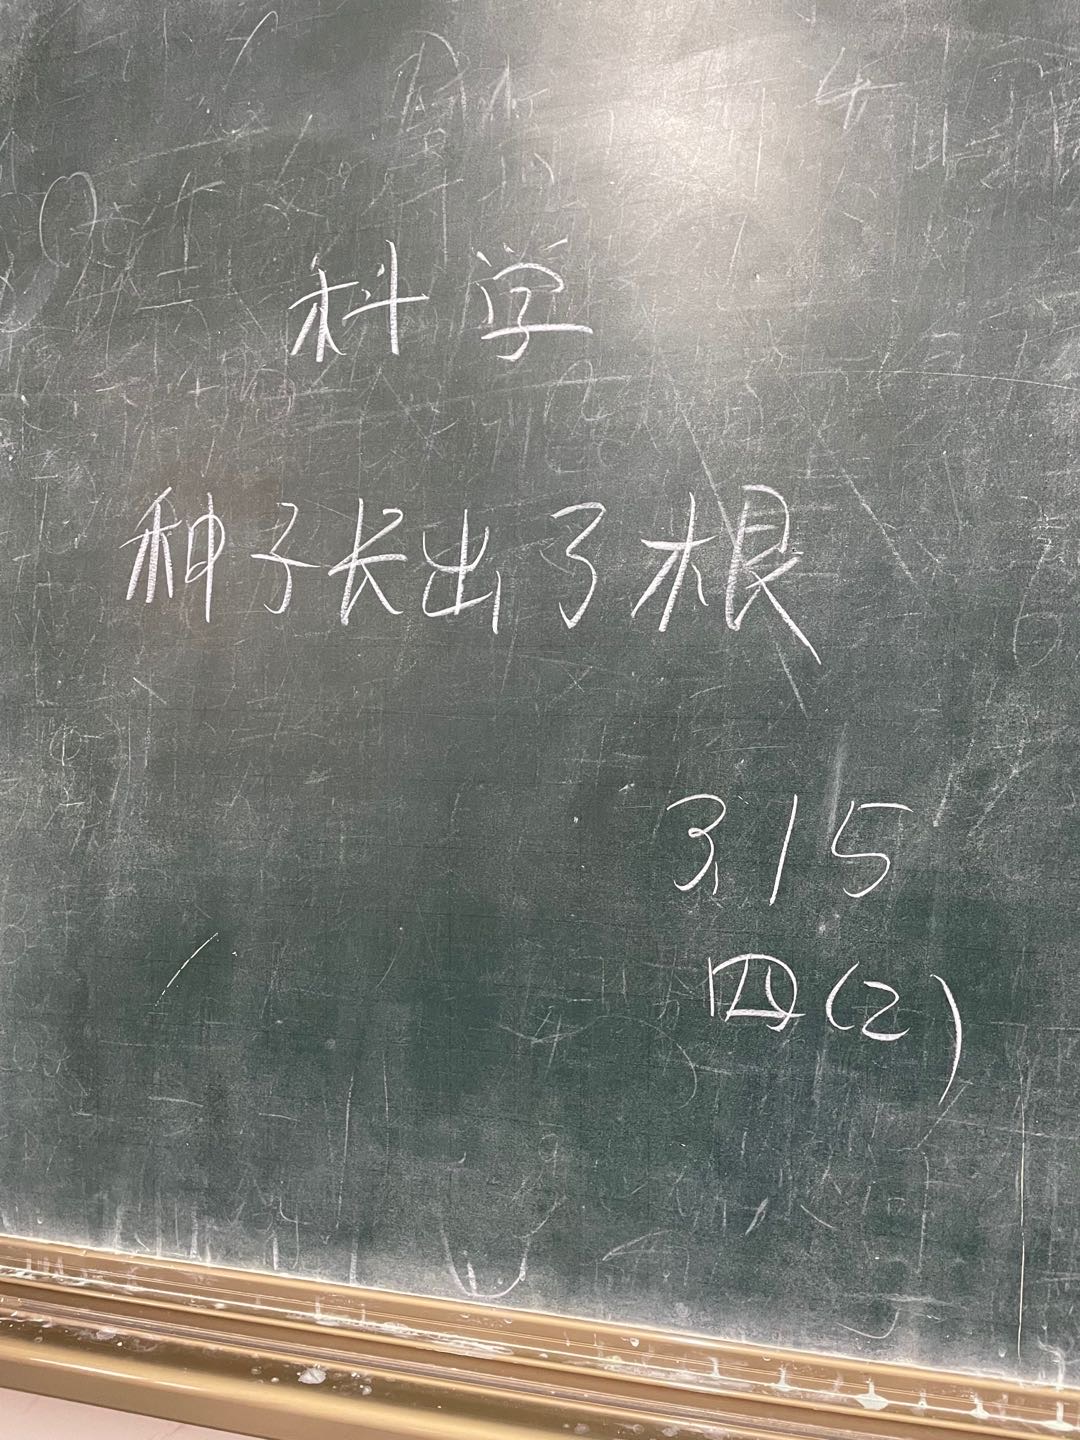 科学
种子长出了根
3,15
四(2)